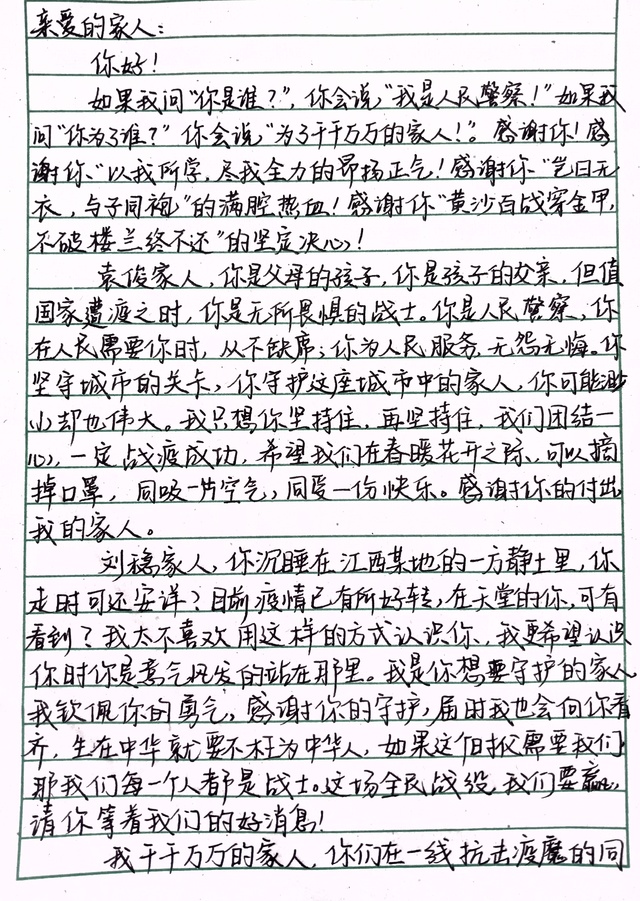 亲爱的家人：
你好！
如果我问“你是谁？”，你会说“我是人民警察！”如果我
问“你为了谁？”你会说“为了千千万万的家人！”。感谢你！感
谢你“以我所学，尽我全力的昂扬正气！感谢你“岂曰无
衣，与子同袍”的满腔热血！感谢你“黄沙百战穿金甲，
不破楼兰终不还”的坚定决心！
袁俊家人，你是父母的孩子，你是孩子的父亲，但值
国家遭疫之时，你是无所畏惧的战士。你是人民警察，你
在人民需要你时，从不缺席；你为人民服务，无怨无悔。你
坚守城市的关卡，你守护这座城市中的家人，你可能渺
小却也伟大。我只想你坚持住，再坚持住，我们团结一
心，一定战疫成功，希望我们在春暖花开之际，可以摘
掉口罩，同吸一片空气，同爱一份快乐。感谢你的付出
我的家人。
刘稳家人，你沉睡在江西某地的一方静土里，你
走时可还安详？目前疫情已有所好转，在天堂的你，可有
看到？我太不喜欢用这样的方式认识你，我更希望认识
你时你是意气风发的站在那里。我是你想要守护的家人
我钦佩你的勇气，感谢你的守护，届时我也会向你看
齐，生在中华就要不枉为中华人，如果这个时候需要我们
那我们每一个人都是战士。这场全民战役，我们要赢，
请你等着我们的好消息！
我千千万万的家人，你们在一线抗击疫魔的同